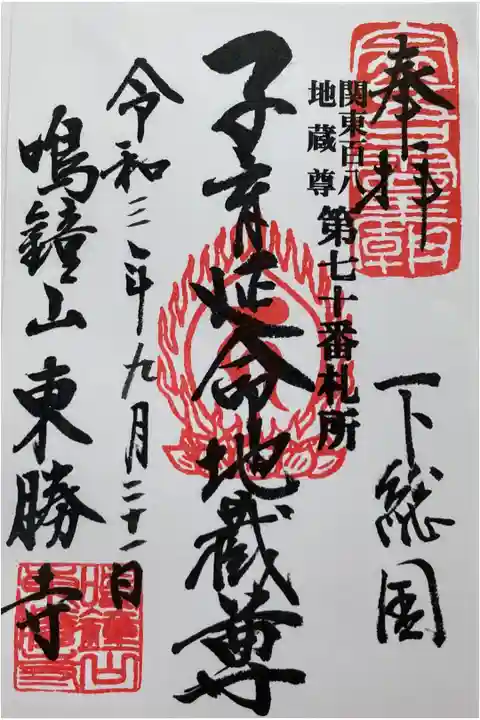 奉拝
下総国
関東百八
地蔵尊
第七十番札所
子育延命地蔵尊
令和三年九月二十一日
鳴鐘山東勝寺